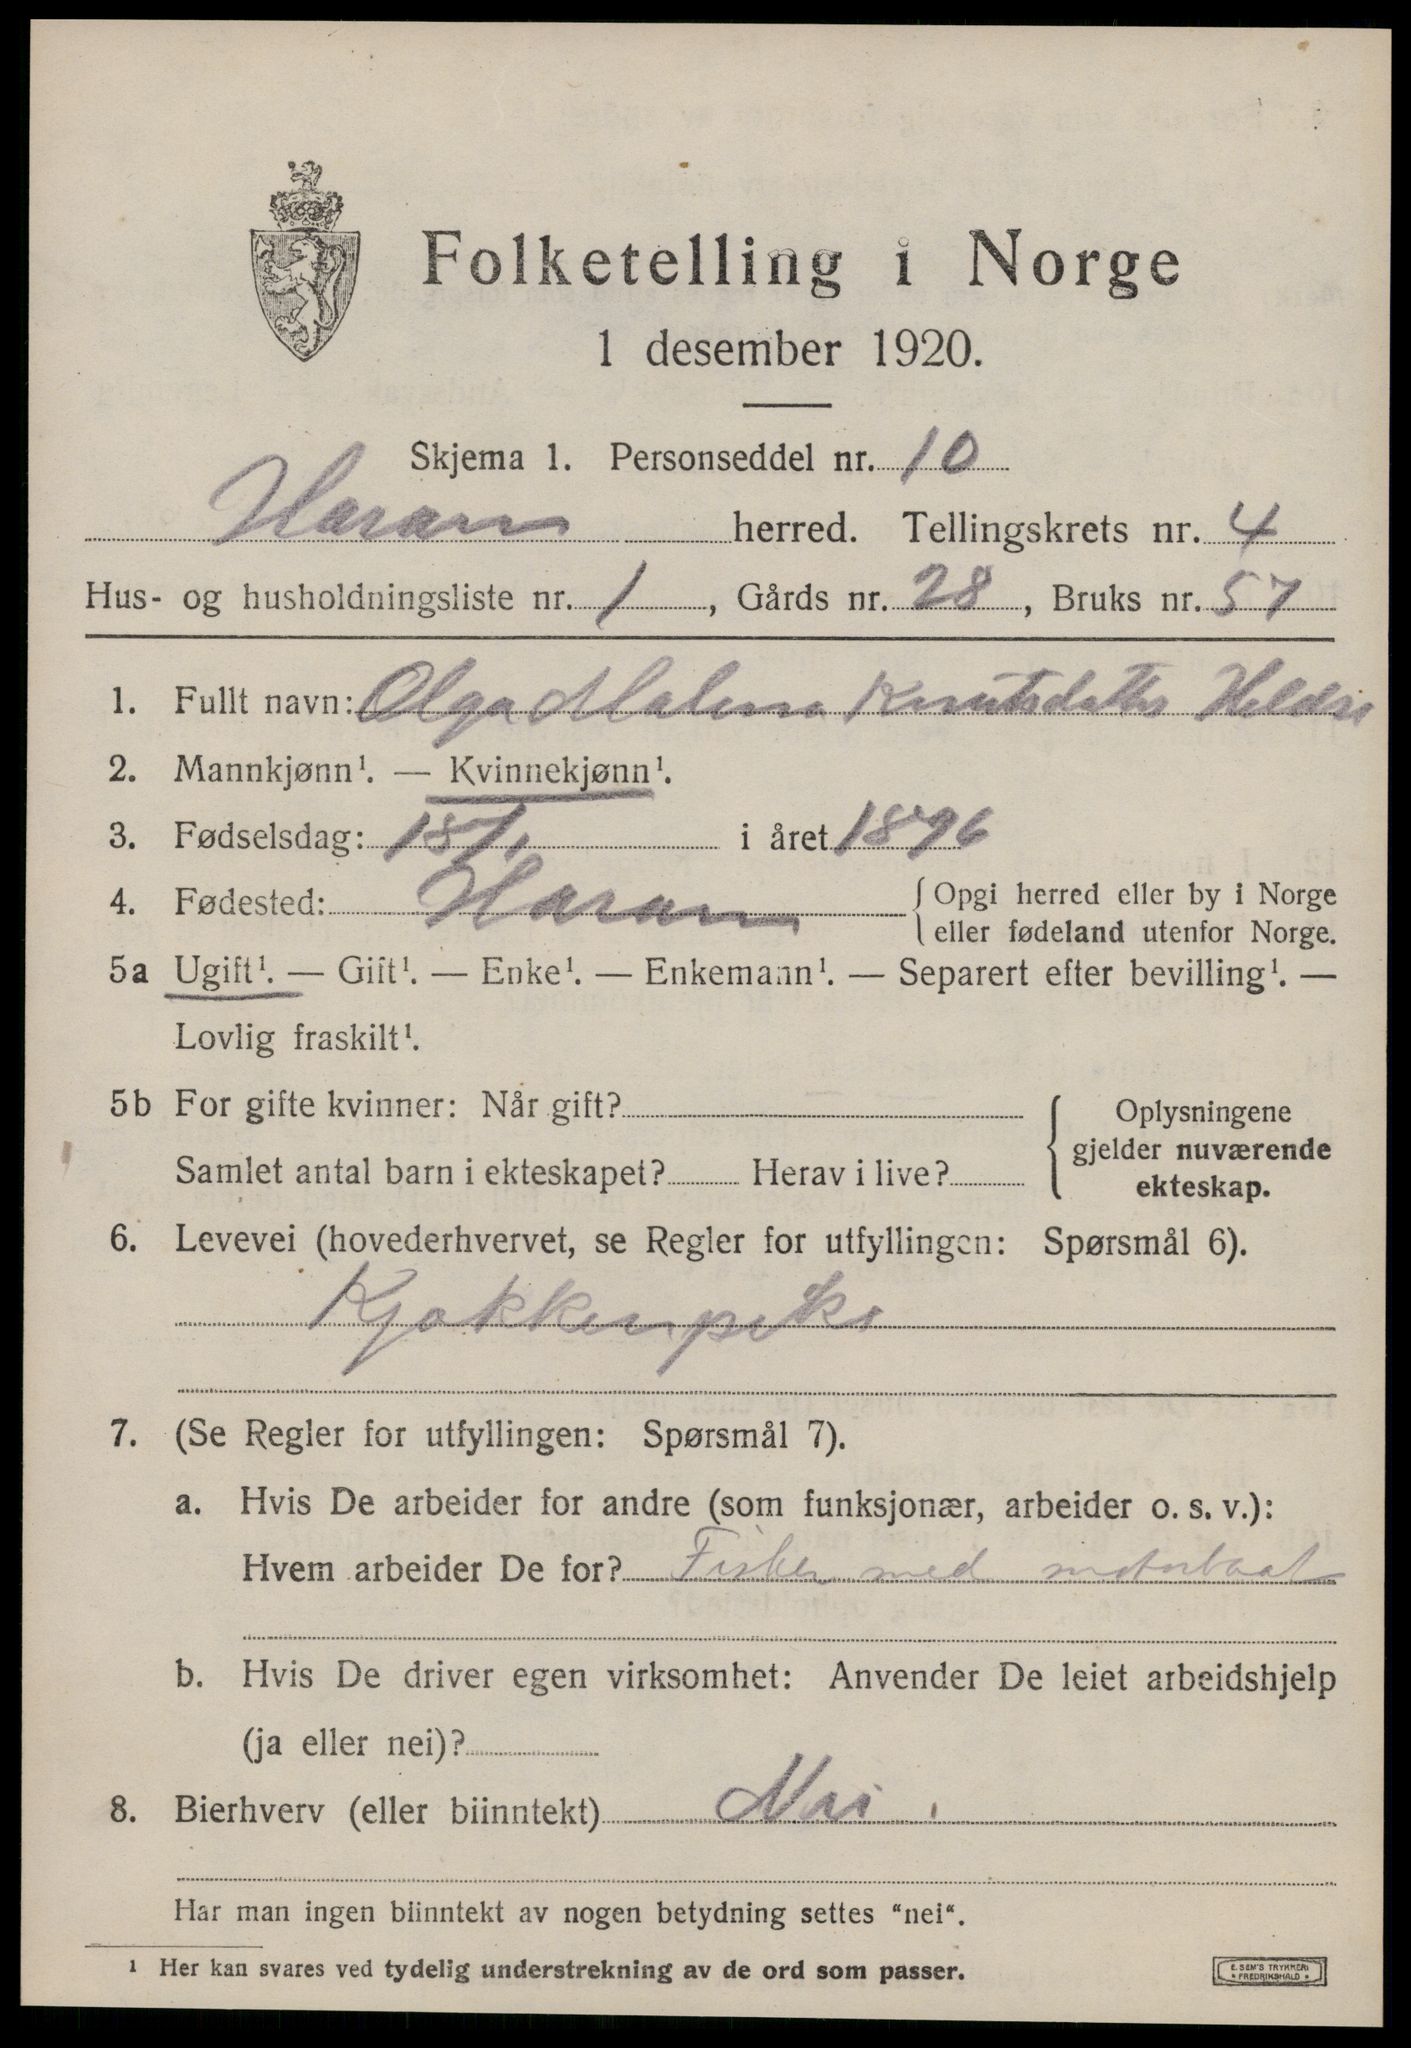 Folketelling i Norge
1 desember 1920.
Skjema 1. Personseddel nr. 10
Haram herred. Tellingskrets nr. 4
Hus- og husholdningsliste nr. 1, Gårds nr. 28, Bruks nr. 57
1. Fullt navn: Olga Malene Knutsdatter Heldre
2. Mannkjønn¹. — Kvinnekjønn¹.
3. Fødselsdag: 18/1 i året 1896
4. Fødested: Haram { Opgi herred eller by i Norge
eller fødeland utenfor Norge.
5a Ugift¹. — Gift¹. — Enke¹. — Enkemann¹. — Separert efter bevilling¹. —
Lovlig fraskilt¹.
5b For gifte kvinner: Når gift? { Oplysningene
gjelder nuværende
Samlet antal barn i ekteskapet? Herav i live? ekteskap.
6. Levevei (hovederhvervet, se Regler for utfyllingen: Spørsmål 6).
Kjøkkenpike
7. (Se Regler for utfyllingen: Spørsmål 7).
a. Hvis De arbeider for andre (som funksjonær, arbeider o. s. v.):
Hvem arbeider De for? Fisker med motorbaat
b. Hvis De driver egen virksomhet: Anvender De leiet arbeidshjelp
(ja eller nei)?
8. Bierhverv (eller biinntekt) Nei
Har man ingen biinntekt av nogen betydning settes "nei".
¹ Her kan svares ved tydelig understrekning av de ord som passer.
E. SEM'S TRYKKERI
* FREDRIKSHALD *